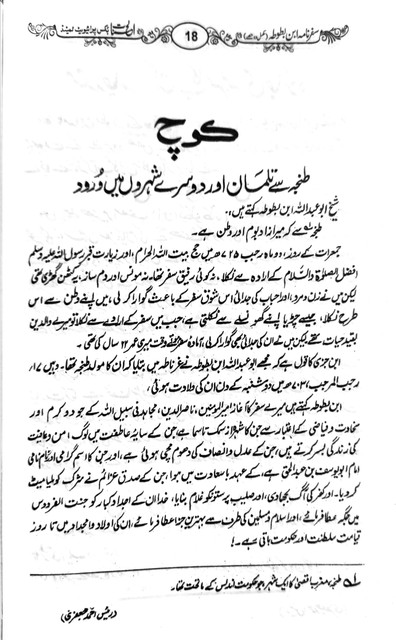 سفرنامہ ابن بطوطہ (مکمل سیٹ)
18
کوچ
طنجہ سے تلمسان اور دوسرے شہروں میں ورود
شیخ ابو عبداللہ ابن بطوطہ کہتے ہیں،
طنجہ سے کہ میرا زاد بوم اور وطن ہے۔
جمعرات کے روز، دو ماہ رجب ۷۲۵ھ میں حج بیت اللہ الحرام، اور زیارت قبر رسول اللہ علیہ وسلم
افضل الصلوٰۃ والسلام کے ارادہ سے نکلا، نہ کوئی رفیق سفر تھا، نہ مونس اور دم ساز، یہ کٹھن گھڑی تھی
لیکن میں نے زن و مرد، اور احباب کی جدائی اس شوق سفر کے باعث گوارا کر لی، میں اپنے وطن سے اس
طرح نکلا، جیسے چڑیا اپنے گھونسلے سے نکلتی ہے، جب میں سفر کے ارادے سے نکلا تو میرے والدین
بقید حیات تھے لیکن میں نے ان کی جدائی بھی گوارا کر لی، آمادہ سفر ہوتے وقت میری عمر ۲۲ سال کی تھی۔
ابن جزی کا قول ہے کہ مجھے ابو عبداللہ ابن بطوطہ نے غرناطہ میں بتایا کہ ان کا مولد طنجہ تھا۔ وہیں ۱۷؍
رجب المرجب، ۷۰۳ھ میں دو شنبہ کے دن ان کی ولادت ہوئی،
ابن بطوطہ کہتے ہیں میرے سفر کا آغاز امیرالمومنین، ناصر الدین، مجاہد فی سبیل اللہ کے جو دو کرم اور
سخاوت و فیاضی کے اعتبار سے جن کا شہرہ از سمک تا سما ہے، جن کے سایۂ عاطفت میں لوگ امن و عافیت
کی زندگی بسر کرتے ہیں، جن کے عدل و انصاف کی دھوم مچی ہوئی ہے، اور جن کا اسم گرامی اور نام نامی
امام ابو یوسف بن عبدالحق ہے، کے عہد با سعادت میں ہوا، جن کے صدق عزائم نے شرک کو ملیا میٹ
کر دیا، اور کفر کی آگ بجھا دی، اور صلیب پرستوں کو غلام بنایا، خدا ان کے اجداد کبار کو جنت الفردوس
میں جگہ عطا فرمائے، اور اسلام و مسلمین کی طرف سے بہترین جزا عطا فرمائے، ان کی اولاد و امجاد میں تا روز
قیامت سلطنت اور حکومت باقی رہے۔!
۱؎ طنجہ، مغرب اقصیٰ کا ایک شہر، جو حکومت اندلس کے ماتحت تھا۔
(رئیس احمد جعفری)